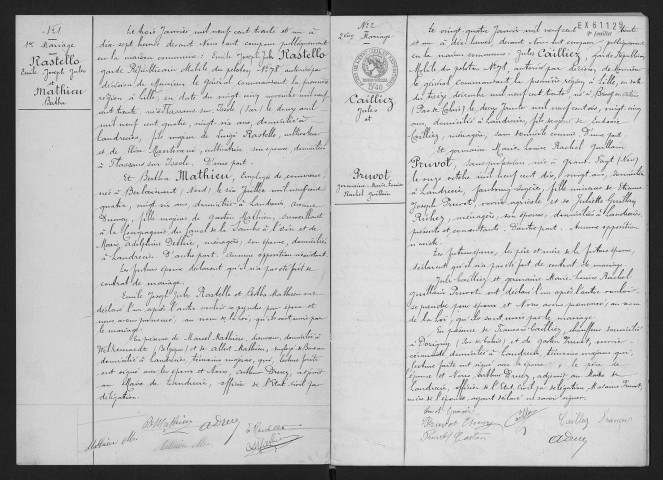 N° 1
1er Mariage
Rastello
Emile Joseph Jules
et
Mathieu
Bertha
Le trois Janvier, mil neuf cent trente et un à
dix sept heures devant Nous ont comparu publiquement
en la maison commune : Emile Joseph Jules Rastello
garde Républicain Mobile du peloton N° 78, autorisé par
décision de Monsieur le général commandant la première
région à Lille, en date du vingt
mil neuf
cent trente, né à Flassans sur Issole (Var) le deux avril
mil neuf cent quatre, vingt six ans, domicilié à
Landrecies, fils majeur de Luigi Rastello, cultivateur
et de cultivatrice son épouse, domiciliés
à Flassans sur Issole. D'une part.
Et Bertha Mathieu, Employée de commerce,
née à Berlaimont (Nord) le six Juillet mil neuf cent
quatre, vingt six ans, domiciliée à Landrecies
fille majeure de Gaston Mathieu, surveillant
à la Compagnie du Canal de la Sambre à l'Oise et de
Marie Adolphine ménagère, son épouse, domiciliés
à Landrecies. D'autre part. Aucune opposition n'existant.
Les futurs époux déclarent qu'il n'a pas été fait de
contrat de mariage.
Emile Joseph Jules Rastello et Bertha Mathieu ont
déclaré l'un après l'autre vouloir se prendre pour époux et
nous avons prononcé, au nom de la loi, qu'ils sont unis par
le mariage.
En présence de Marcel Mathieu, domicilié à
(Belgique) et de Albert Mathieu, employé de Bureau
domicilié à Landrecies, témoins majeurs, qui, lecture faite
ont signé avec les époux et Nous, Arthur Druez, adjoint
au Maire de Landrecies, officier de l'Etat Civil par
délégation.
B. Mathieu
A Druez
Mathieu M.
N° 2
2ème Mariage
Cailliez
Jules
et
Pruvot
Germaine Marie Louise
Rachel Guillain
EX 61129
feuillet
Le vingt quatre Janvier mil neuf cent
trente et un à dix heures devant Nous ont comparu publiquement
en la maison commune : Jules Cailliez, garde Républicain
Mobile du peloton N° 78, autorisé par décision de Monsieur
le général commandant la première région, à Lille, en date
du treize décembre mil neuf cent trente, né à
(Pas de Calais) le deux Juin mil neuf cent trois, vingt sept
ans, domicilié à Landrecies, fils majeur de
Cailliez, ménagère, sans domicile connu. D'une part.
Et Germaine Marie Louise Rachel Guillain
Pruvot, sans profession, née à Grand Fayt (Nord)
le onze octobre mil neuf cent dix, vingt ans, domiciliée
à Landrecies, faubourg Soyère, fille mineure de Etienne
Joseph Pruvot, ouvrier agricole et de Juliette Guillain
ménagère, son épouse, domiciliés à Landrecies,
présents et consentants. D'autre part. Aucune opposition
n'existe.
Les futurs époux, les père et mère de la future épouse,
déclarent qu'il n'a pas été fait de contrat de mariage.
Jules Cailliez et Germaine Marie Louise Rachel
Guillain Pruvot ont déclaré l'un après l'autre vouloir
se prendre pour époux et Nous avons prononcé, au nom
de la loi, qu'ils sont unis par le mariage.
En présence de François Cailliez, chauffeur domicilié
à (Pas de Calais) et de Gaston Pruvot, ouvrier
domicilié à Landrecies, témoins majeurs qui,
lecture faite ont signé avec les époux, le père de
l'épouse et Nous Arthur Druez, adjoint au Maire de
Landrecies, officier de l'Etat Civil par délégation. Madame Pruvot,
mère de l'épouse, ayant déclaré ne savoir signer.
Cailliez
Cailliez François
Pruvot Gaston
A Druez